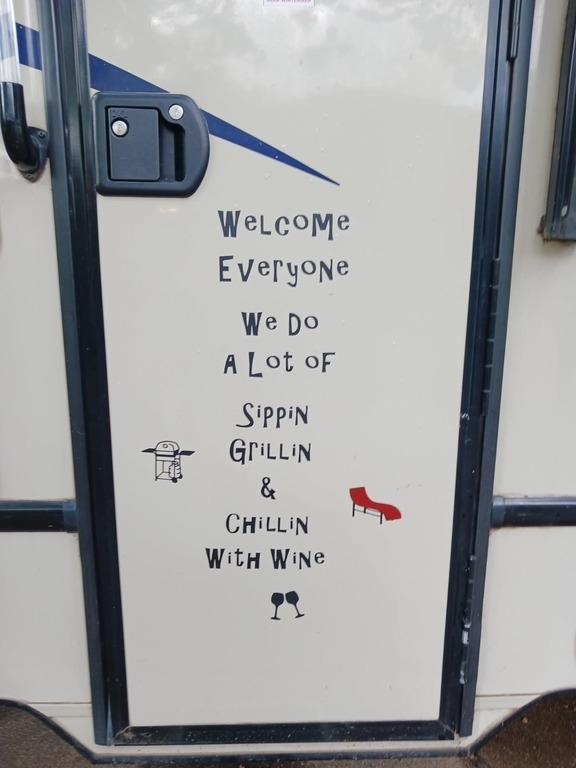 Welcome
Everyone
We Do
A Lot of
Sippin
Grillin
&
Chillin
With Wine